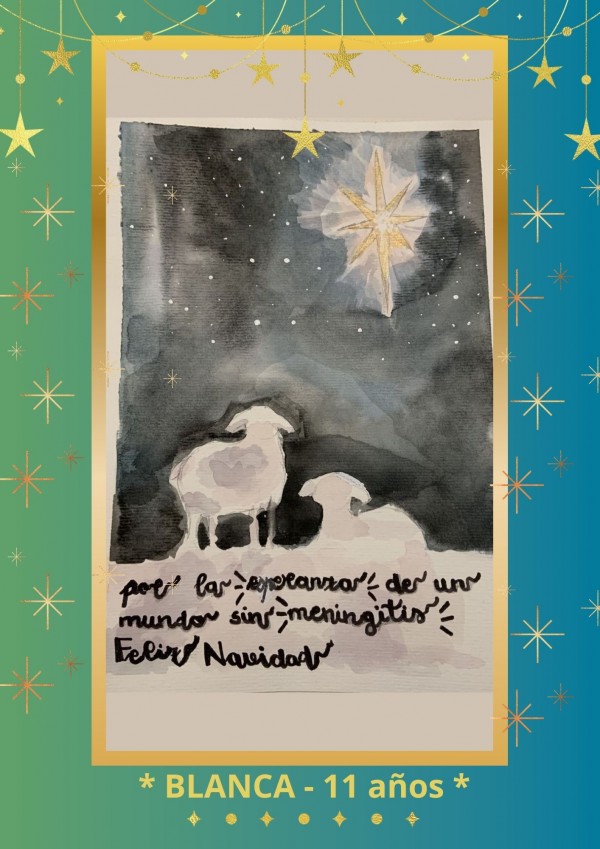 por la esperanza de un
mundo sin meningitis
Feliz Navidad
* BLANCA - 11 años *